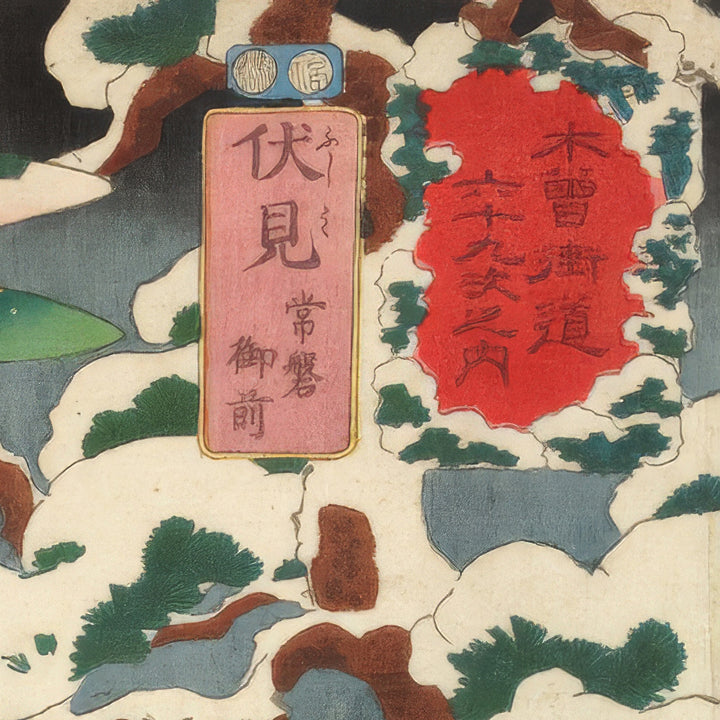 木曽街道
六十九次之内
伏見
ふしみ
常磐
御前